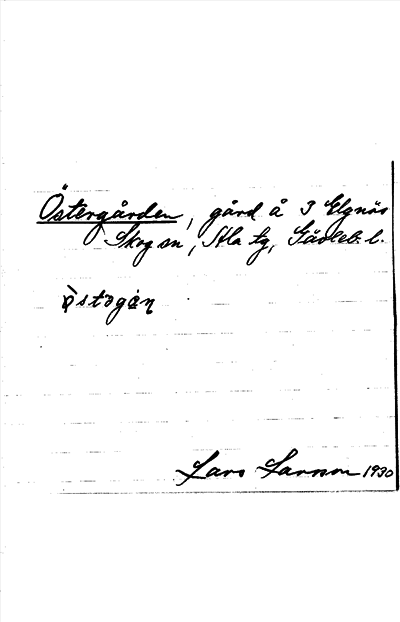 Östergården, gård å 3 Elgnäs
Skog sn, Ala tg, Gävleb. l.
östogạn
Lars Larsson 1930